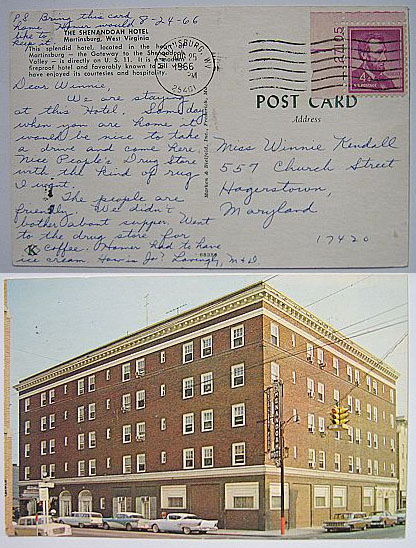 P.S. Bring this card
home. Homer would
like to
keep it.
8-24-66
THE SHENANDOAH HOTEL
Martinsburg, West Virginia
This splendid hotel, located in the heart of
Martinsburg — the Gateway to the Shenandoah
Valley — is directly on U. S. 11. It is a modern
fireproof hotel and favorably known to
have enjoyed its courtesies and hospitality.
Dear Winnie,
We are staying
at this Hotel. Some day
when you are home it
would be nice to take
a drive and come here.
Nice People's Drug Store
with the kind of rug
I want.
The people are
friendly. We didn't
bother about supper. Went
to the drug store for
coffee. Homer had to have
ice cream. How is Jo? Lovingly, M & D.
K
68386
MARTINSBURG, W.V.
AUG 25
PM
1966
25401
4¢
U.S. POSTAGE
POST CARD
Address
Miss Winnie Kendall
557 Church Street
Hagerstown,
Maryland
17420
SHENANDOAH
HOTEL